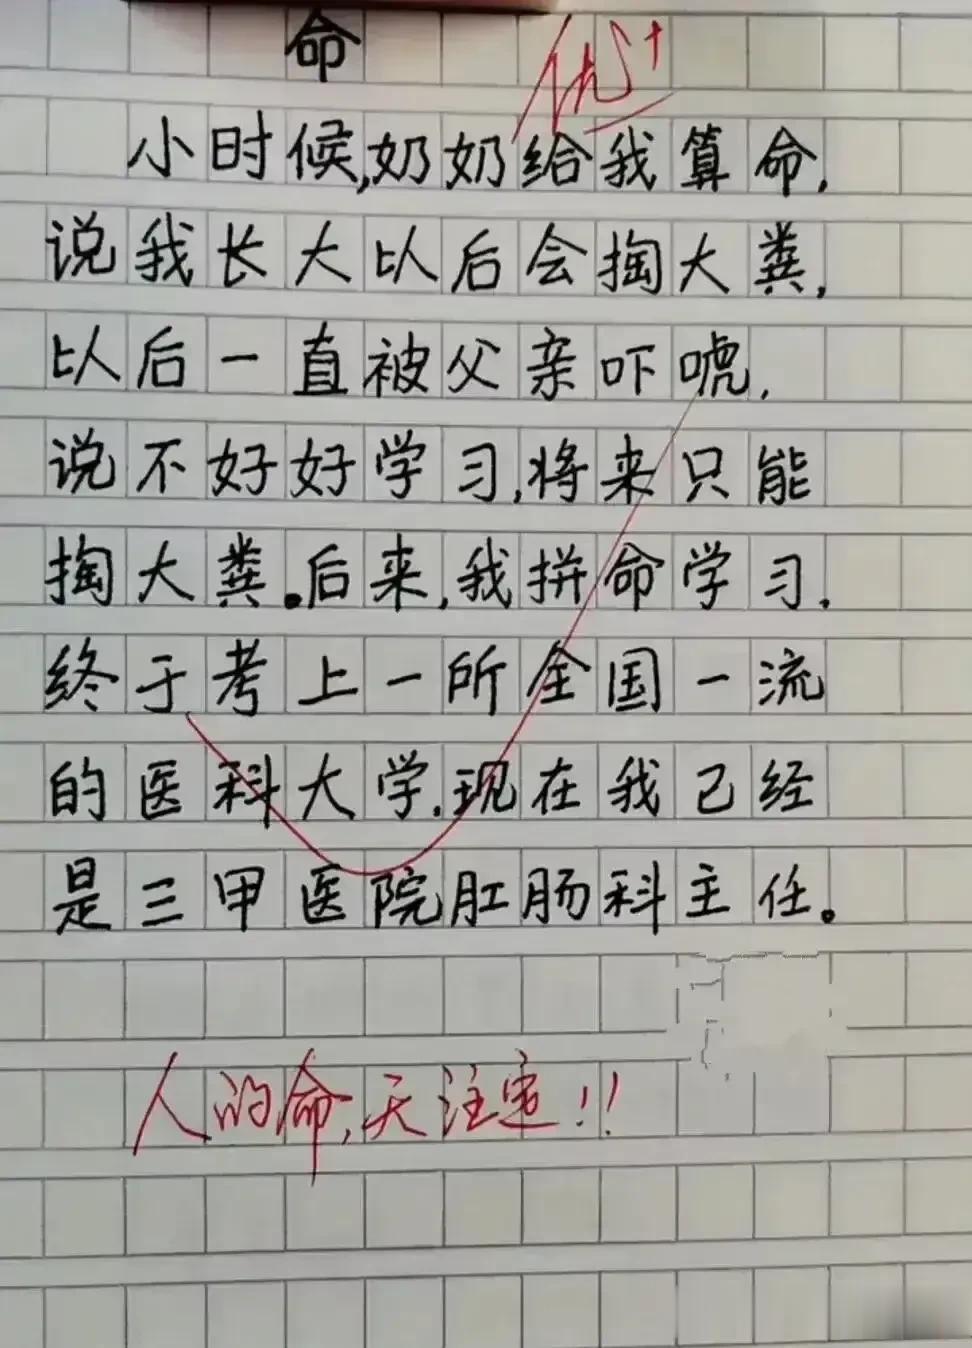 命
优+
小时候,奶奶给我算命,
说我长大以后会掏大粪,
以后一直被父亲吓唬,
说不好好学习,将来只能
掏大粪。后来,我拼命学习.
终于考上一所全国一流
的医科大学.现在我已经
是三甲医院肛肠科主任。
人的命,天注定!!